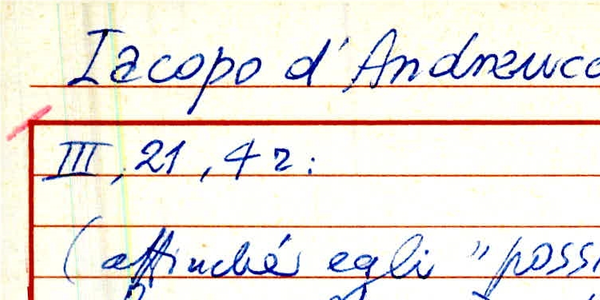 Iacopo d'Andreucc
III, 21, 4 r:
(affinché egli "possi